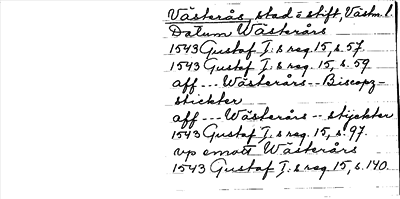 Västerås, stad o stift, Västm. l.
Datum Wästerårs
1543 Gustaf I:s reg. 15, s. 57.
1543 Gustaf I:s reg. 15, s. 59
aff --- Wästerårs -- Biscopz-
stickter
aff --- Wästerårs -- stijckter
1543 Gustaf I:s reg. 15, s. 97.
vp emott Wästerårs
1543 Gustaf I:s reg. 15, s. 140.